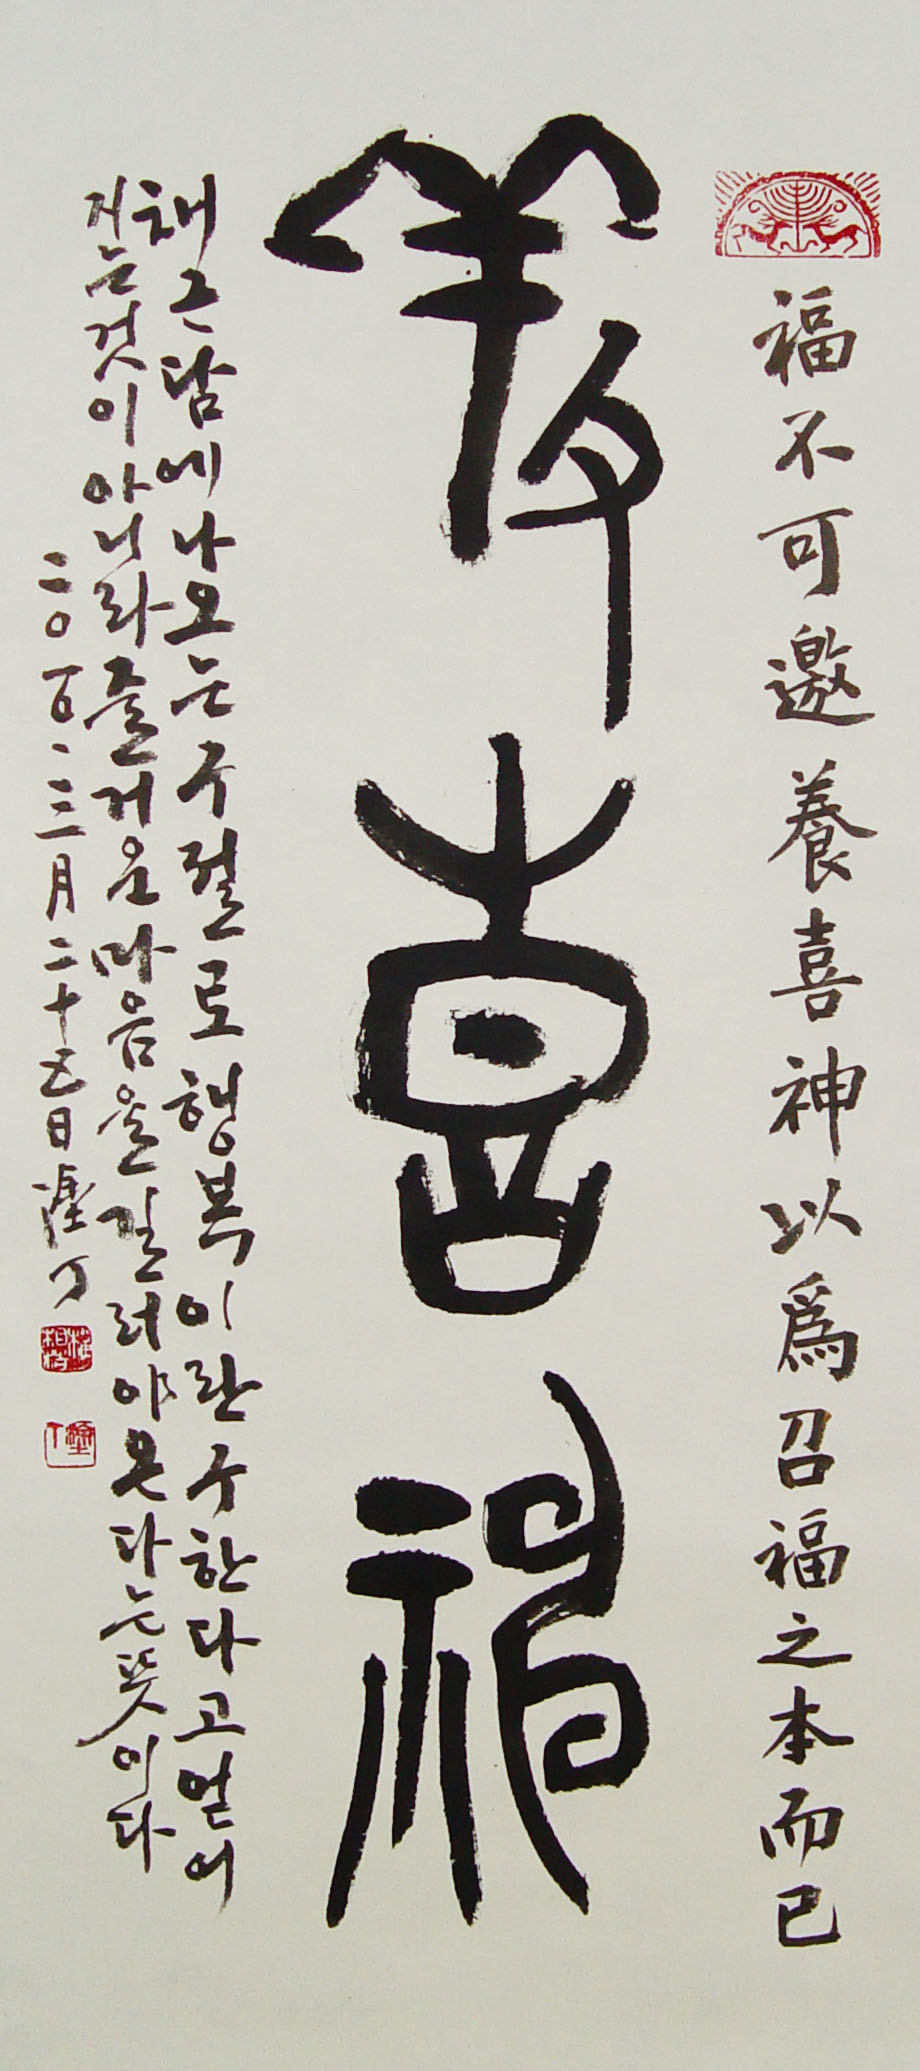 福不可邀養喜神以爲召福之本而已
養喜神
채근담에나오는구절로행복이란구한다고얻어
지는것이아니라즐거운마음을길러야온다는뜻이다
二〇百二三月二十五日